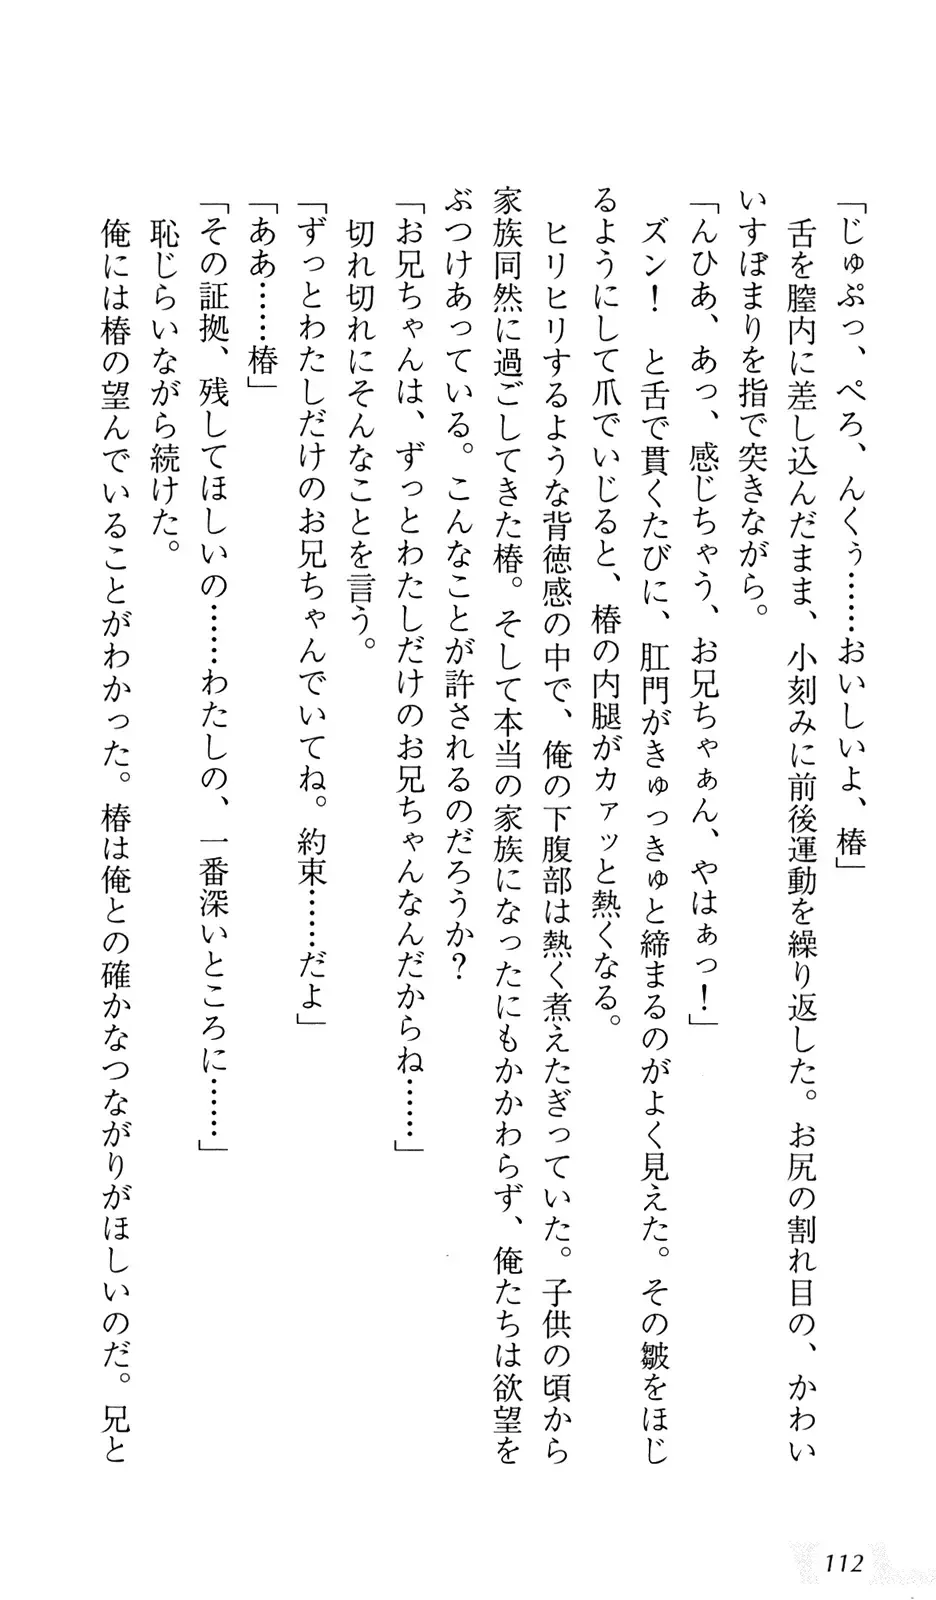 「じゅぷっ、ぺろ、んくぅ……おいしいよ、椿」
舌を膣内に差し込んだまま、小刻みに前後運動を繰り返した。お尻の割れ目の、かわい
いすぼまりを指で突きながら。
「んひあ、あっ、感じちゃう、お兄ちゃぁん、やはぁっ！」
ズン！　と舌で貫くたびに、肛門がきゅっきゅと締まるのがよく見えた。その皺をほじ
るようにして爪でいじると、椿の内腿がカァッと熱くなる。
ヒリヒリするような背徳感の中で、俺の下腹部は熱く煮えたぎっていた。子供の頃から
家族同然に過ごしてきた椿。そして本当の家族になったにもかかわらず、俺たちは欲望を
ぶつけあっている。こんなことが許されるのだろうか？
「お兄ちゃんは、ずっとわたしだけのお兄ちゃんなんだからね……」
切れ切れにそんなことを言う。
「ずっとわたしだけのお兄ちゃんでいてね。約束……だよ」
「ああ……椿」
「その証拠、残してほしいの……わたしの、一番深いところに……」
恥じらいながら続けた。
俺には椿の望んでいることがわかった。椿は俺との確かなつながりがほしいのだ。兄と
112